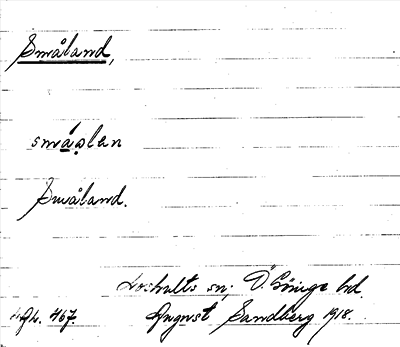 Småland,
småslen
Småland.
Loshults sn; Ö. Göinge hd.
467 August Sandberg 1918.